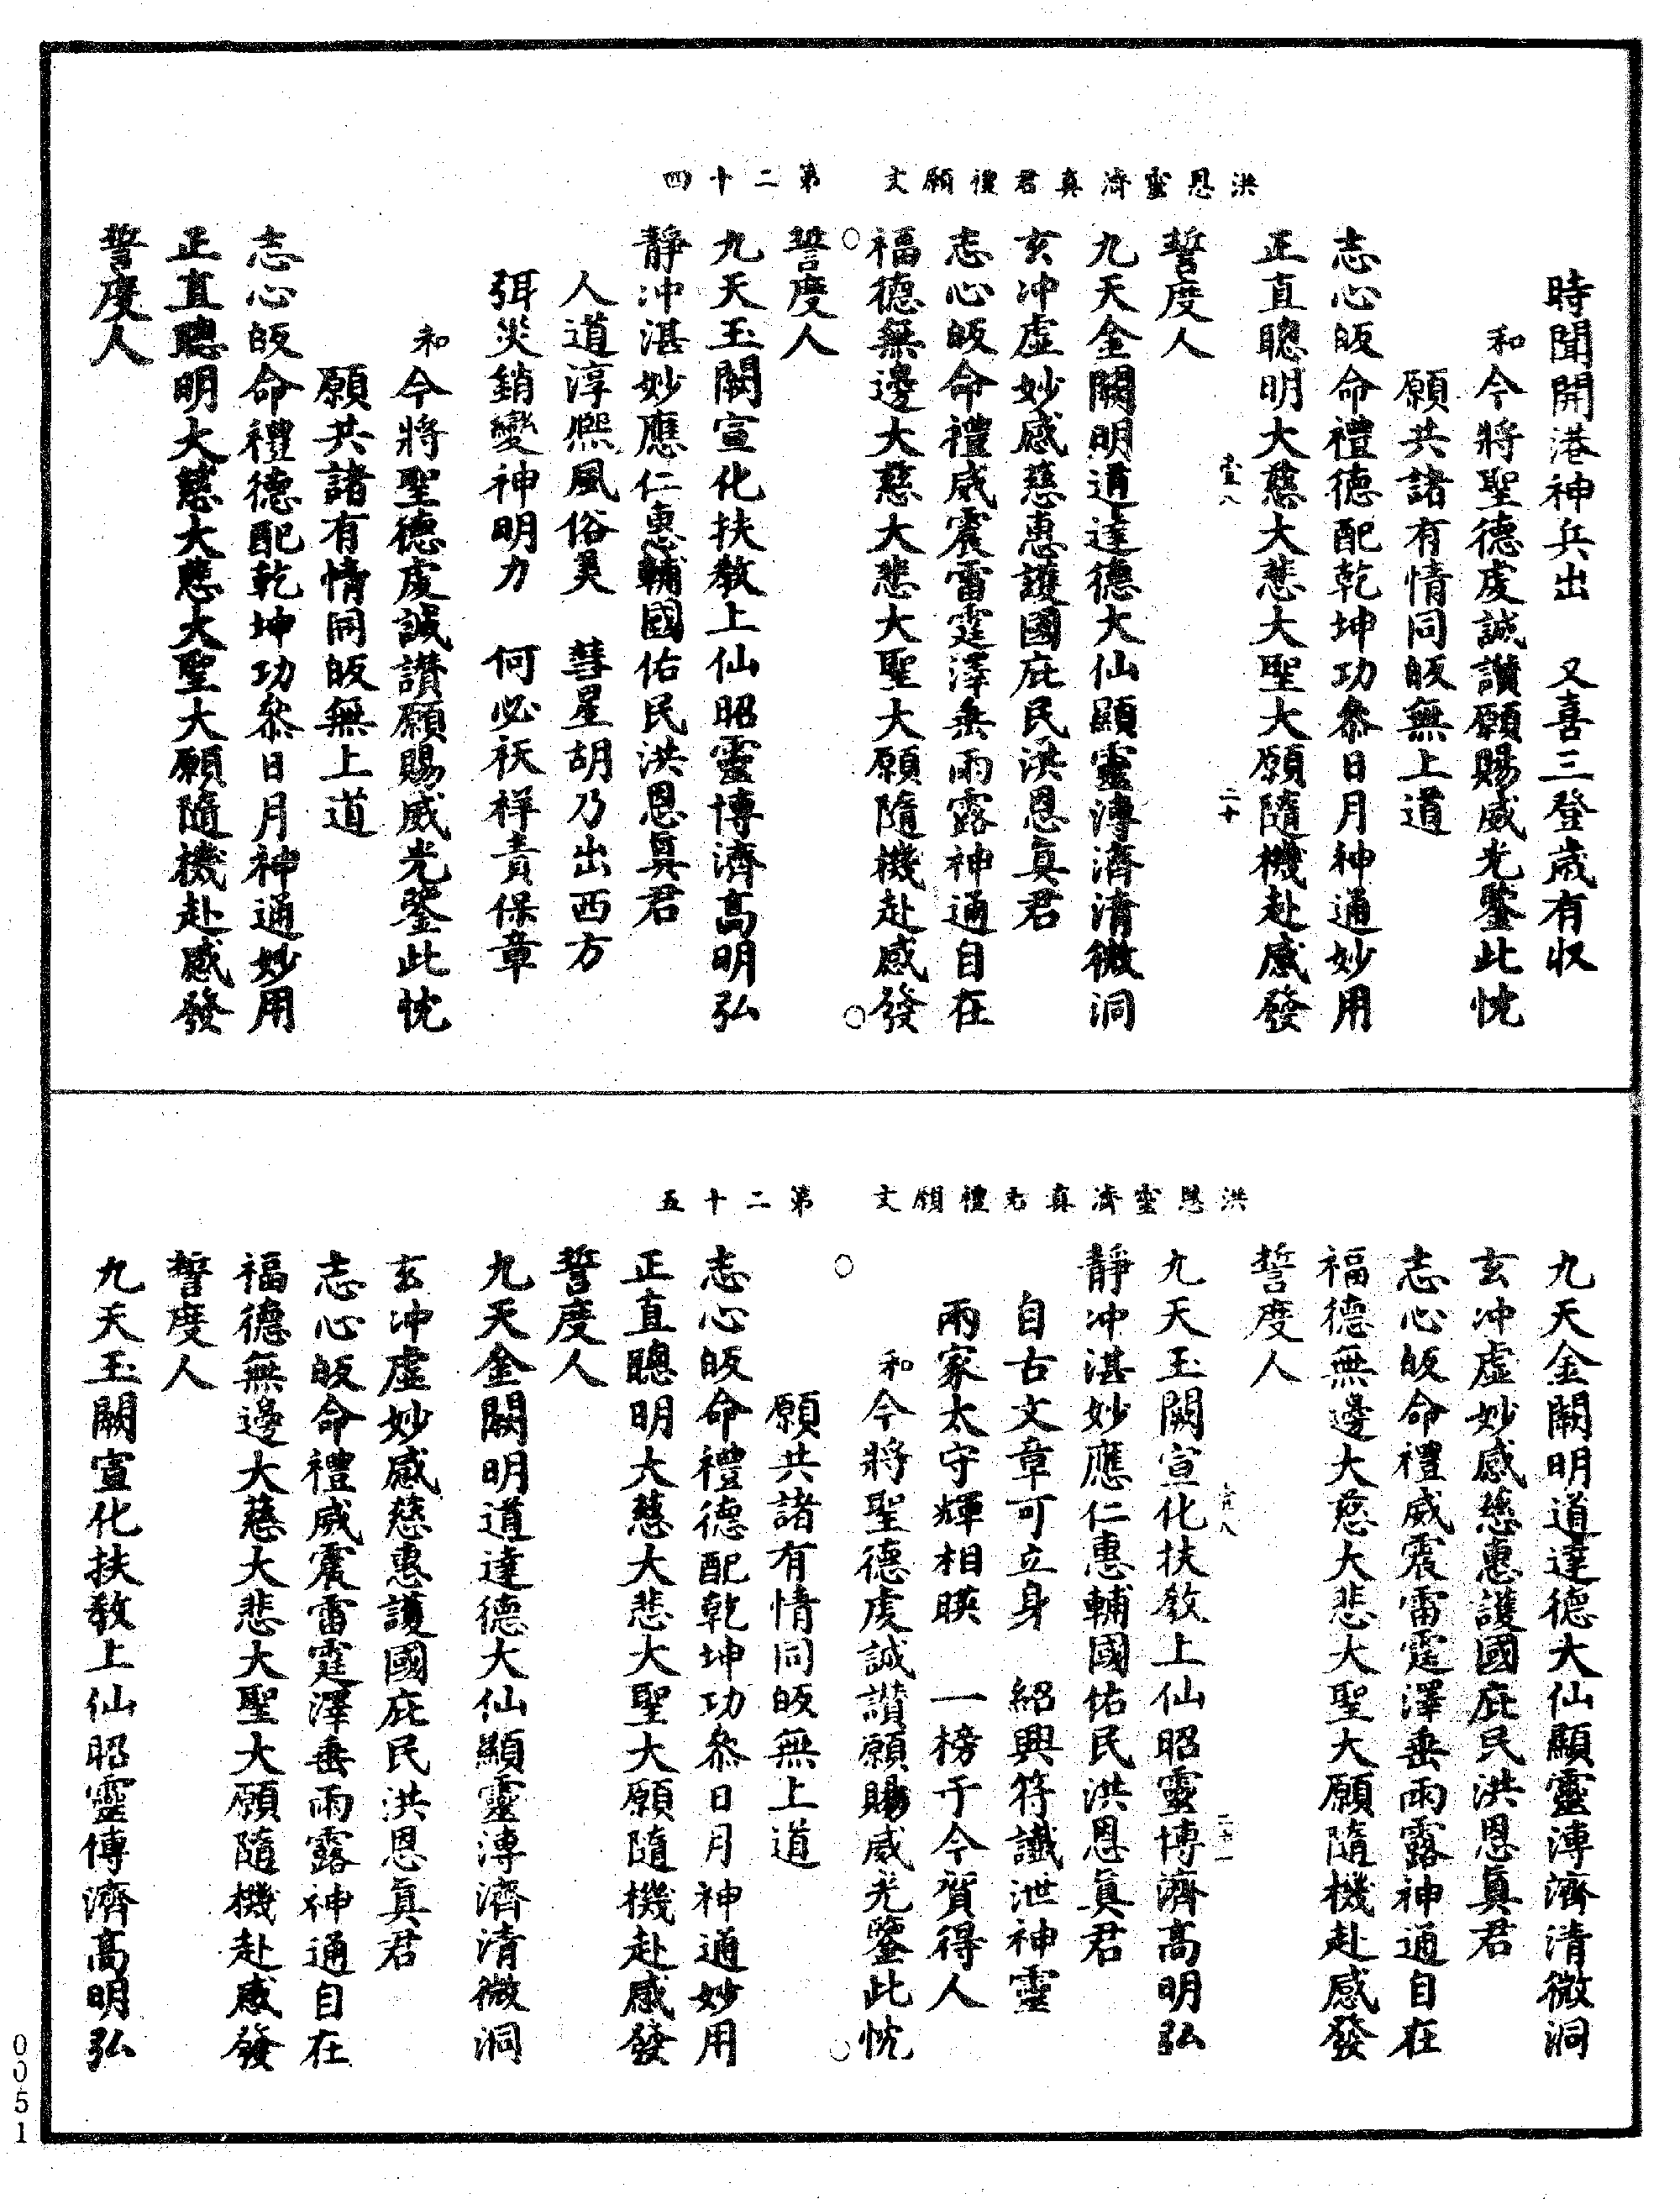 洪恩靈濟真君禮願文　第二十四
時聞開港神兵出　又喜三登歲有收
和今將聖德虔誠讚願賜威光鑒此忱
願共諸有情同皈無上道
志心皈命禮德配乾坤功叅日月神通妙用
正直聰明大慈大悲大聖大願隨機赴感發
壹八　二十
誓度人
九天金闕明道達德大仙顯靈溥濟清微洞
玄冲虛妙感慈惠護國庇民洪恩真君
志心皈命禮威震雷霆澤垂雨露神通自在
福德無邊大慈大悲大聖大願隨機赴感發
誓度人
九天玉闕宣化扶教上仙昭靈博濟高明弘
靜冲湛妙應仁惠輔國佑民洪恩真君
人道淳熈風俗美　彗星胡乃出西方
弭災銷變神明力　何必祅祥責保章
和今將聖德虔誠讃願賜威光鑒此忱
願共諸有情同皈無上道
志心皈命禮德配乾坤功叅日月神通妙用
正直聰明大慈大悲大聖大願隨機赴感發
誓度人
洪恩靈濟真君禮願文　第二十五
九天金闕明道達德大仙顯靈溥濟清微洞
玄冲虛妙感慈惠護國庇民洪恩真君
志心皈命禮威震雷霆澤垂雨露神通自在
福德無邊大慈大悲大聖大願隨機赴感發
誓度人
八　二十一
九天玉闕宣化扶教上仙昭靈博濟高明弘
靜冲湛妙應仁惠輔國佑民洪恩真君
自古文章可立身　紹興符讖泄神靈
兩家太守輝相暎　一榜于今賀得人
和今將聖德虔誠讃願賜威光鑒此忱
願共諸有情同皈無上道
志心皈命禮德配乾坤功叅日月神通妙用
正直聰明大慈大悲大聖大願隨機赴感發
誓度人
九天金闕明道達德大仙顯靈溥濟清微洞
玄冲虛妙感慈惠護國庇民洪恩真君
志心皈命禮威震雷霆澤垂雨露神通自在
福德無邊大慈大悲大聖大願隨機赴感發
誓度人
九天玉闕宣化扶教上仙昭靈博濟高明弘
0051